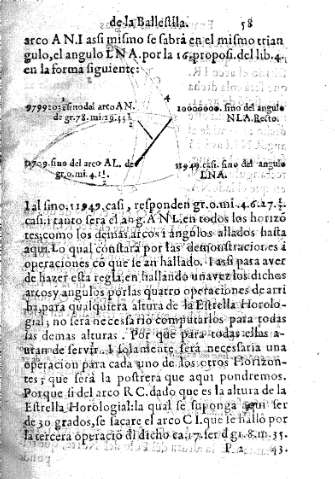 de la Ballestila. 58
arco AN. I assi mismo se sabrà en el mismo trian
gulo, el angulo LNA. por la 16. proposi. del lib. 4.
en la forma siguiente:
A
sino dal arco AN. 10000000. sino del angulo
de gr. 78. mi. 29. NLA. Recto.
sino del arco AL. de 11949. casi. sino del angulo
gr. 0. mi. 4. LNA.
I al sino. 11949. casi, responden gr. 0. mi. 4. 6. 27.
casi: i tanto serà el ang. ANL. en todos los horizó
tes; como los demas arcos i angulos allados hasta
aqui. Lo qual constarà por las demonstraciones i
operaciones có que se an hallado. I assi para aver
de hazer esta regla, en hallando una vez los dichos
arcos y angulos por las quatro operaciones de arri
ba, para qualquiera altura de la Estrella Horolo-
gial; no serà necessario computarlos para todas
las demas alturas. Por que para todas ellas a-
utan de servir. I solamente serà necessaria una
operacion para cada uno de los otros Horizon-
tes; que serà la postrera que aqui pondremos.
Porque si del arco RC. dado que es la altura de la
Estrella Horologial: la qual se suponga aqui ser
de 30 grados, se sacare el arco CI. que se halló por
la tercera operació del dicho ca. 17. ser d g1. 8. m. 35.
P. 2 43.